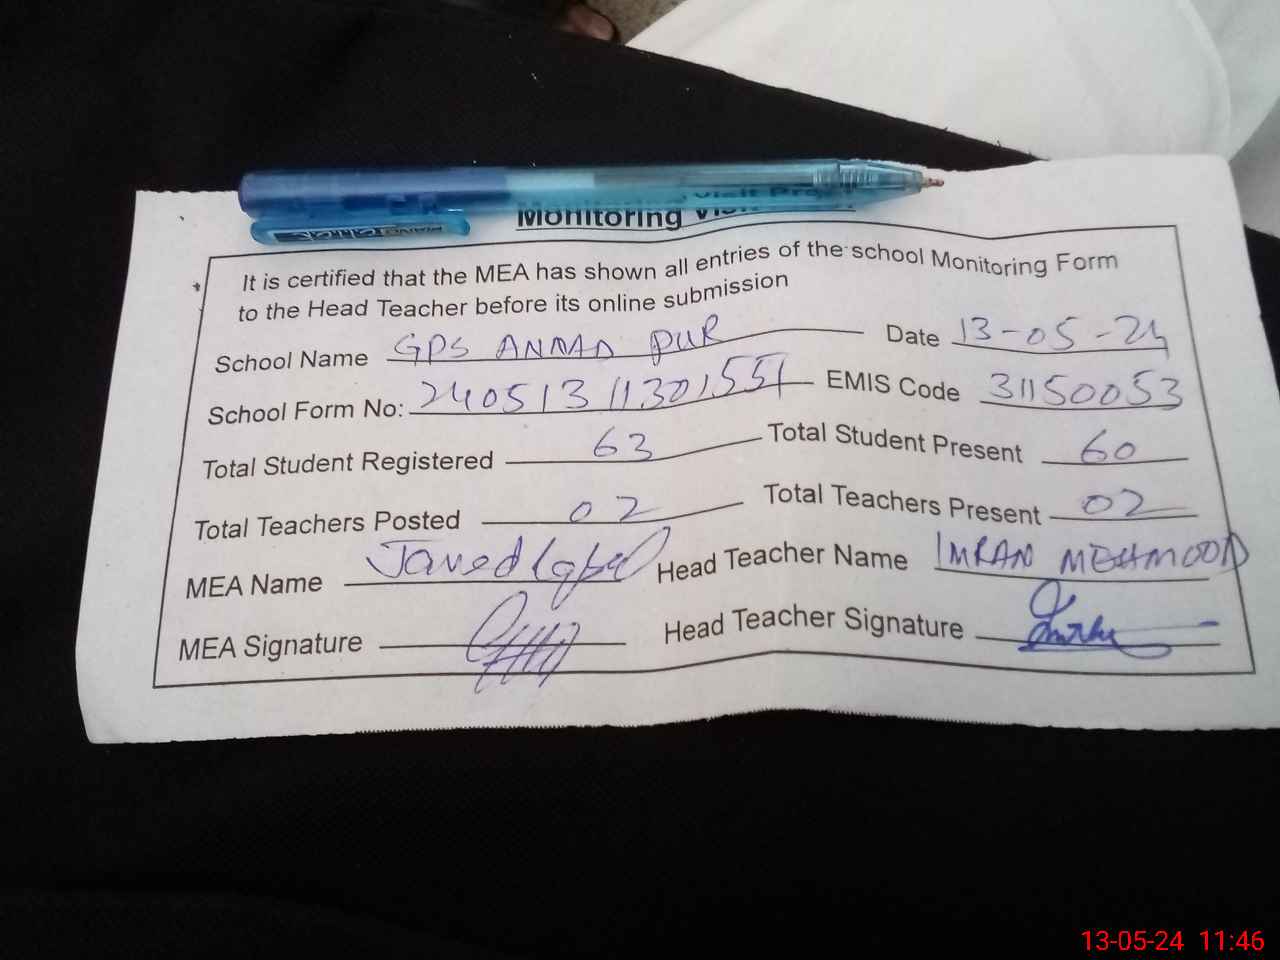 Monitoring Visit Pro
It is certified that the MEA has shown all entries of the school Monitoring Form
to the Head Teacher before its online submission
School Name GPS ANAAD PUR Date 13-05-24
School Form No: 24051311301551 EMIS Code 31150053
Total Student Registered 63 Total Student Present 60
Total Teachers Posted 02 Total Teachers Present 02
MEA Name Javed Iqbal Head Teacher Name IMRAN MEHMOOD
MEA Signature Head Teacher Signature
13-05-24 11:46